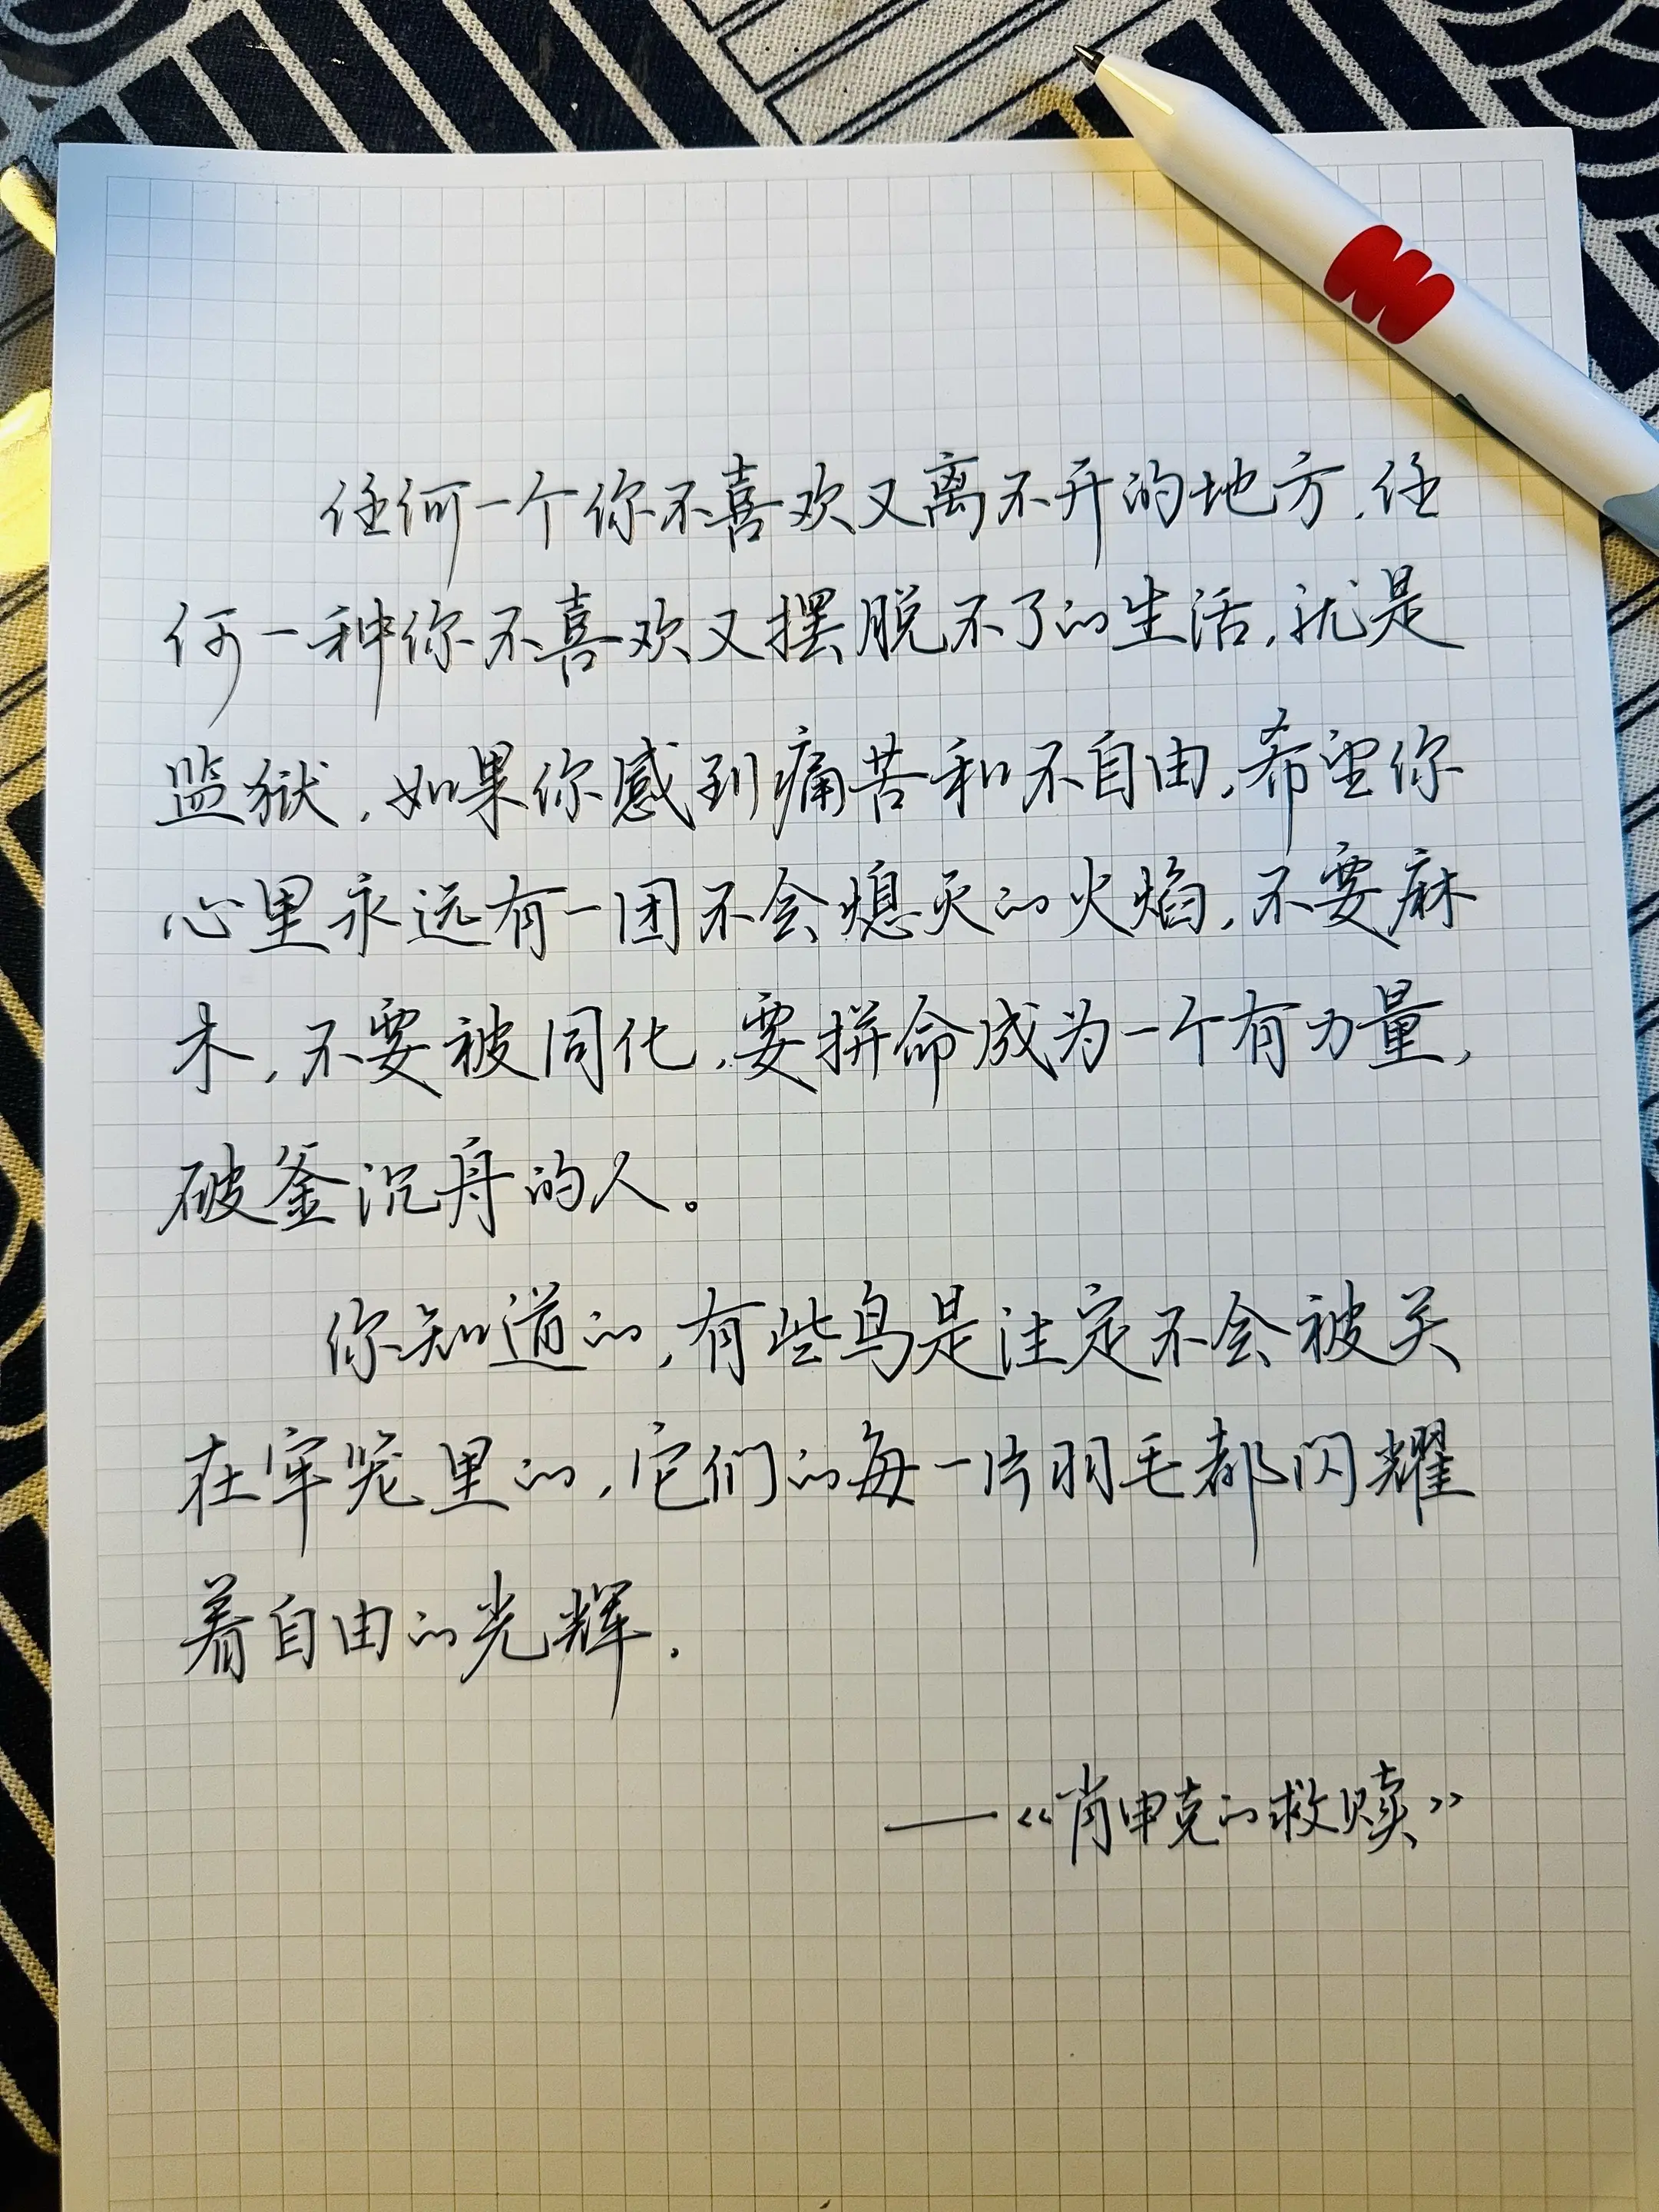 任何一个你不喜欢又离不开的地方,任
何一种你不喜欢又摆脱不了的生活,就是
监狱,如果你感到痛苦和不自由,希望你
心里永远有一团不会熄灭的火焰,不要麻
木,不要被同化,要拼命成为一个有力量,
破釜沉舟的人。
你知道的,有些鸟是注定不会被关
在牢笼里的,它们的每一片羽毛都闪耀
着自由的光辉.
——《肖申克的救赎》